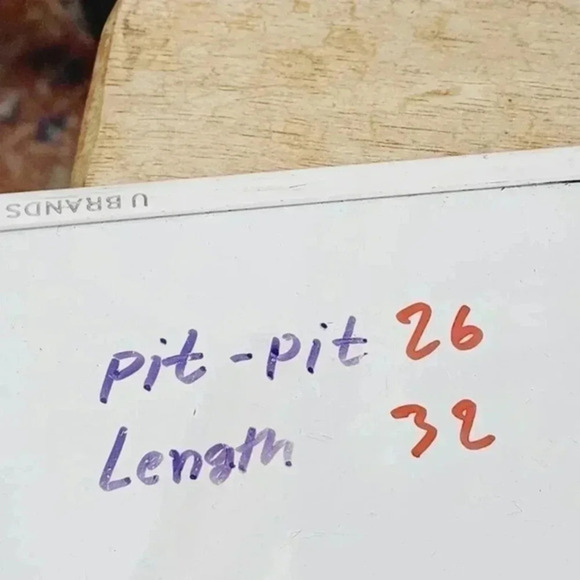 U BRANDS
pit-pit 26
Length 32